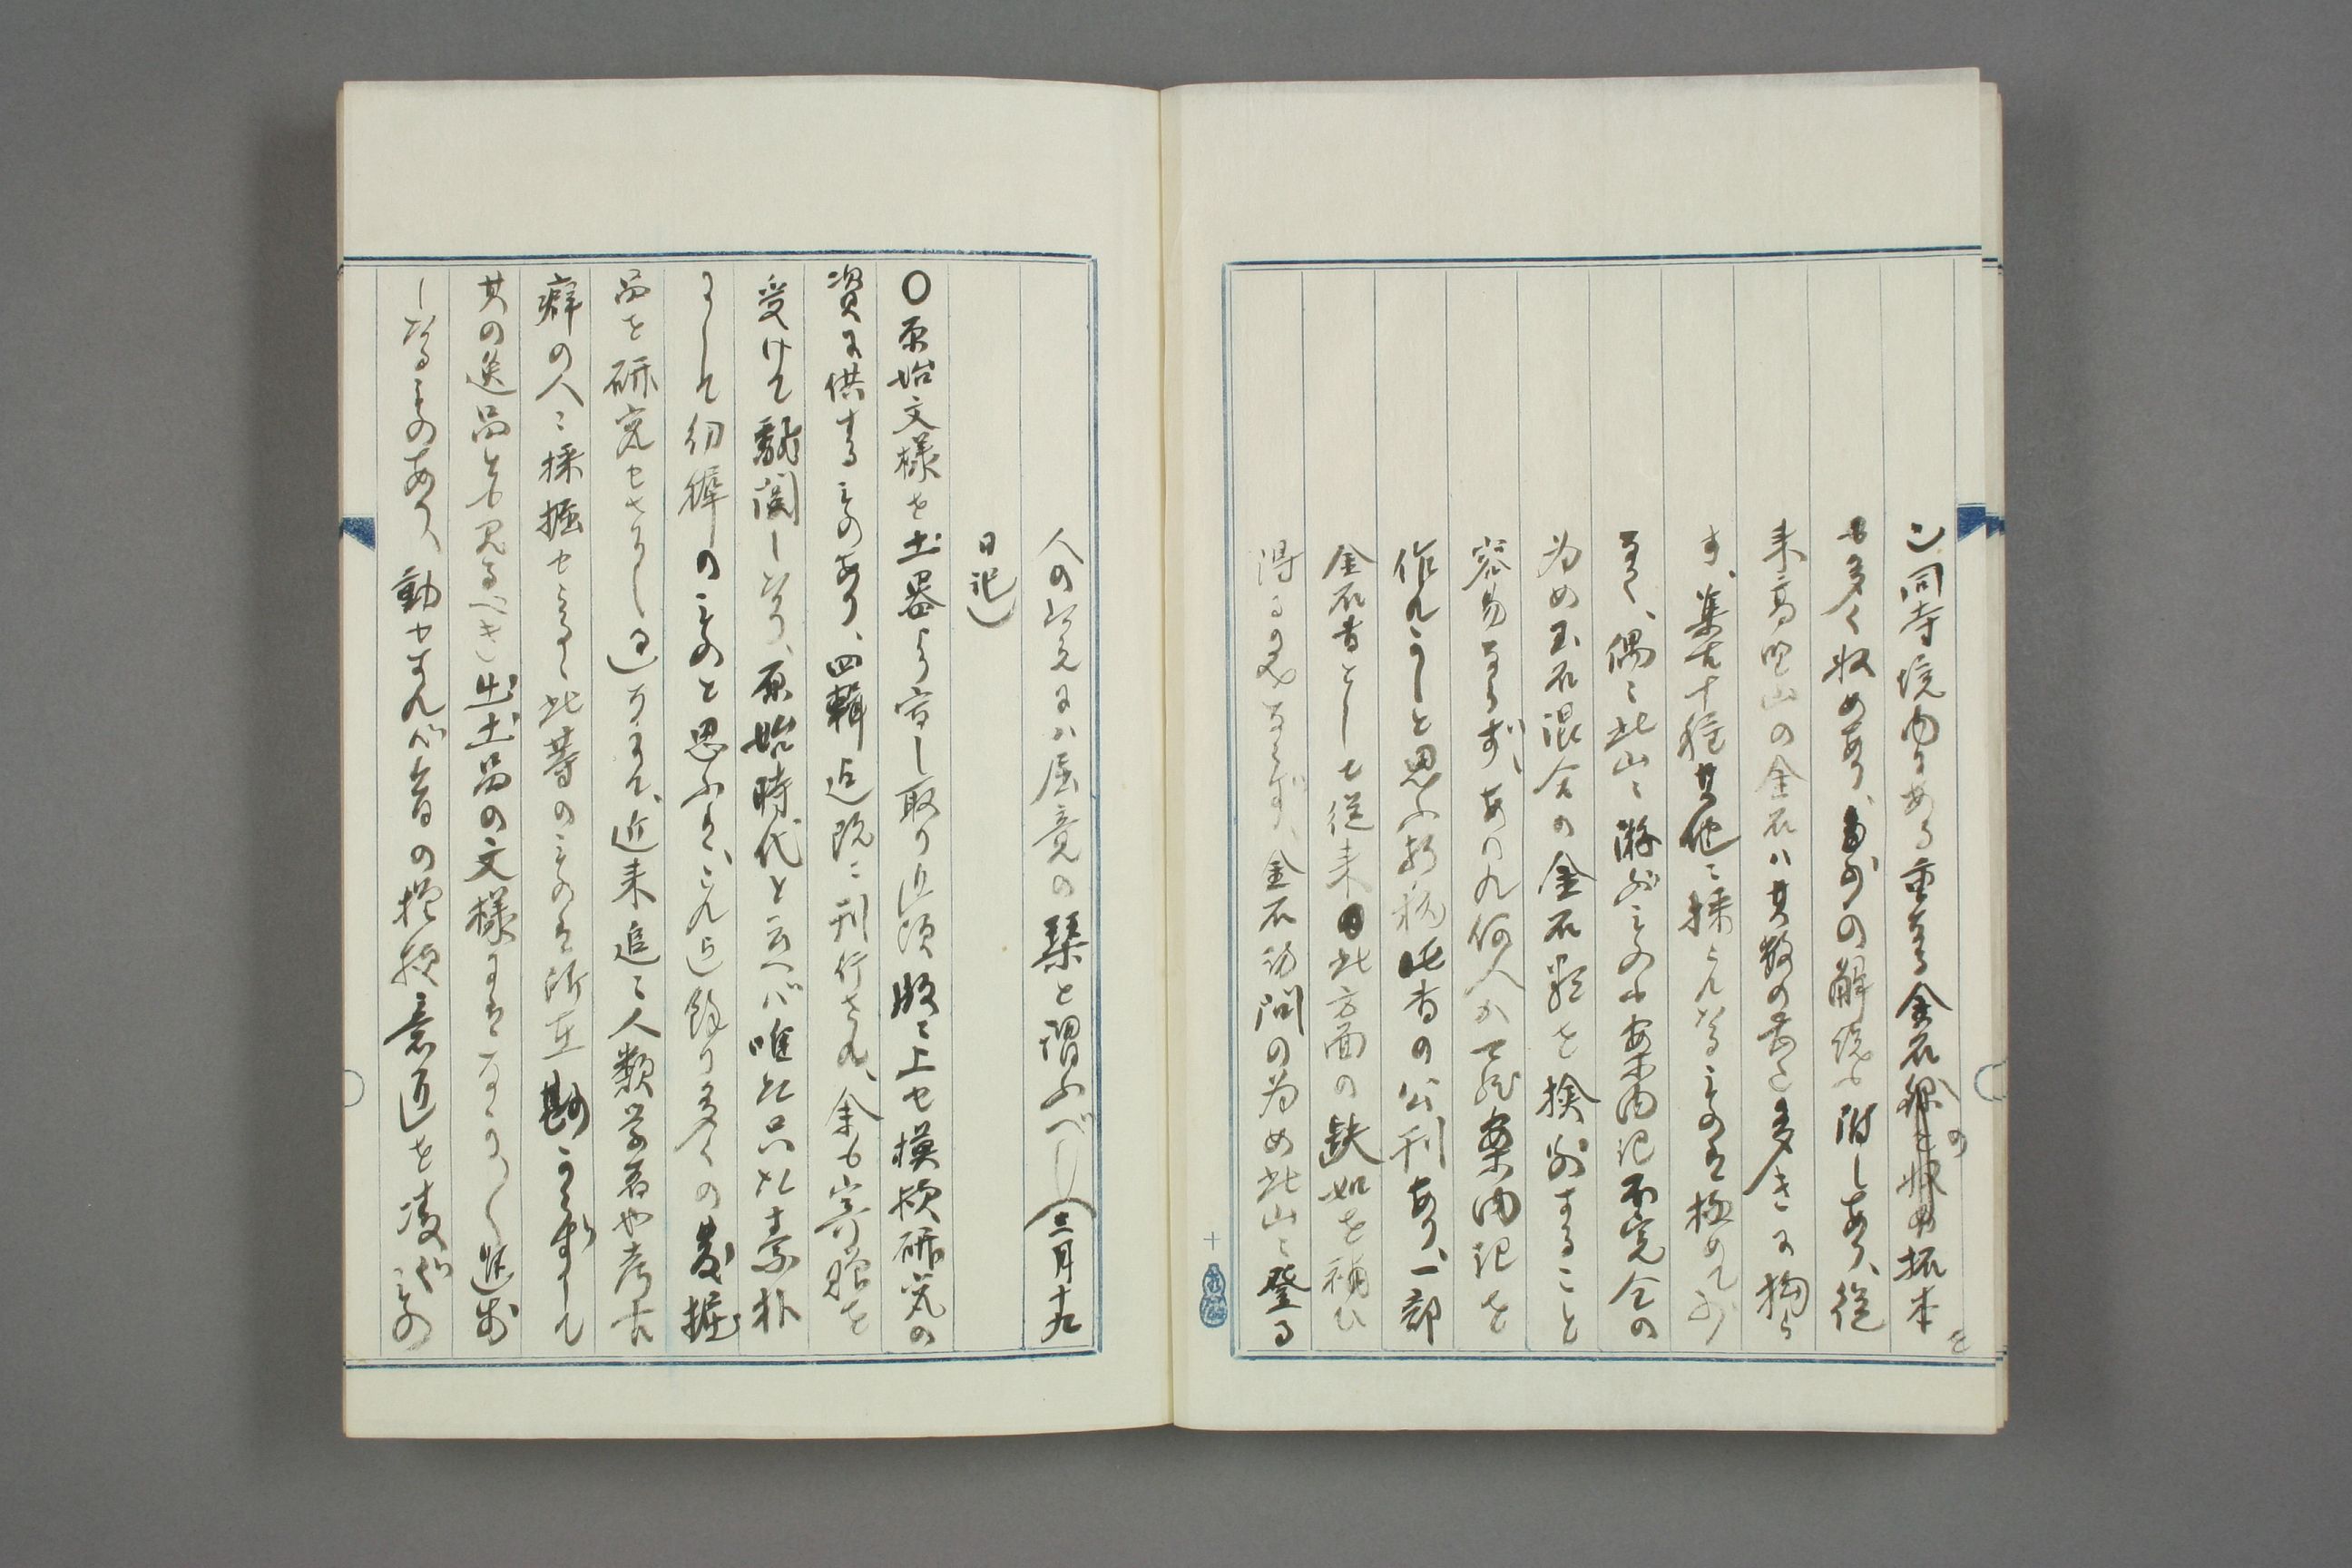 し同寺境内にある重なる金石の拓本を
も多く収めあり、多少の解説も附しあり、従
来高野山の金石ハ其数の甚だ多きに拘ら
ず、集古十種其他に採られたるものは極めて少
なく、偶に此山に遊ぶもの亦案内記不完全の
為め玉石混合の金石類を検別すること
容易ならず、あはれ何人か て案内記を
作れかしと思ふ折柄此書の公刊あり、一部
金石書としても従来此方面の缺如を補ひ
得るのみならず、金石訪問の為め此山に登る
人の為にハ屈竟の栞と謂ふべし(三月十九
日記)
〇原始文様を土器より写し取り近頃版に上せ模様研究の
資に供するものあり、四輯迄既に刊行さる、余も寄贈を
受けて翻閲したり、原始時代と云へバ唯だ只だ素朴
にして の ものと思ふは、これ迄餘り多くの発掘
品を研究せざりし過ちにて、近来追に人類学者や考古
癖の人に採掘せらるゝ此等のものは所在尠からずして
其の逸品とも見るべき出土品の文様にはなか〳〵進歩
したるものあり、動やすれバ今日の模様意匠を凌ぐもの